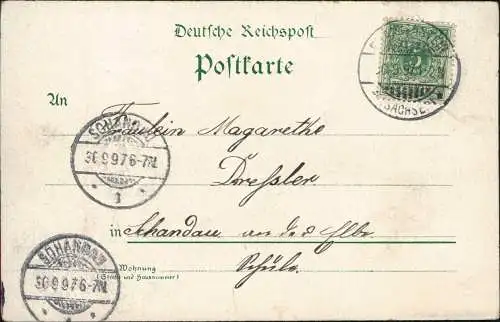 Deutsche Reichspost
Postkarte
An
SCHANDAU
30.9.97.6-7N.
1
Fräulein Magarethe
Dressler
in Schandau an des Elbe
Wohnung
(Straße und Hausnummer)
Schule
SCHANDAU
30.9.97.6-7N.
SACHSEN